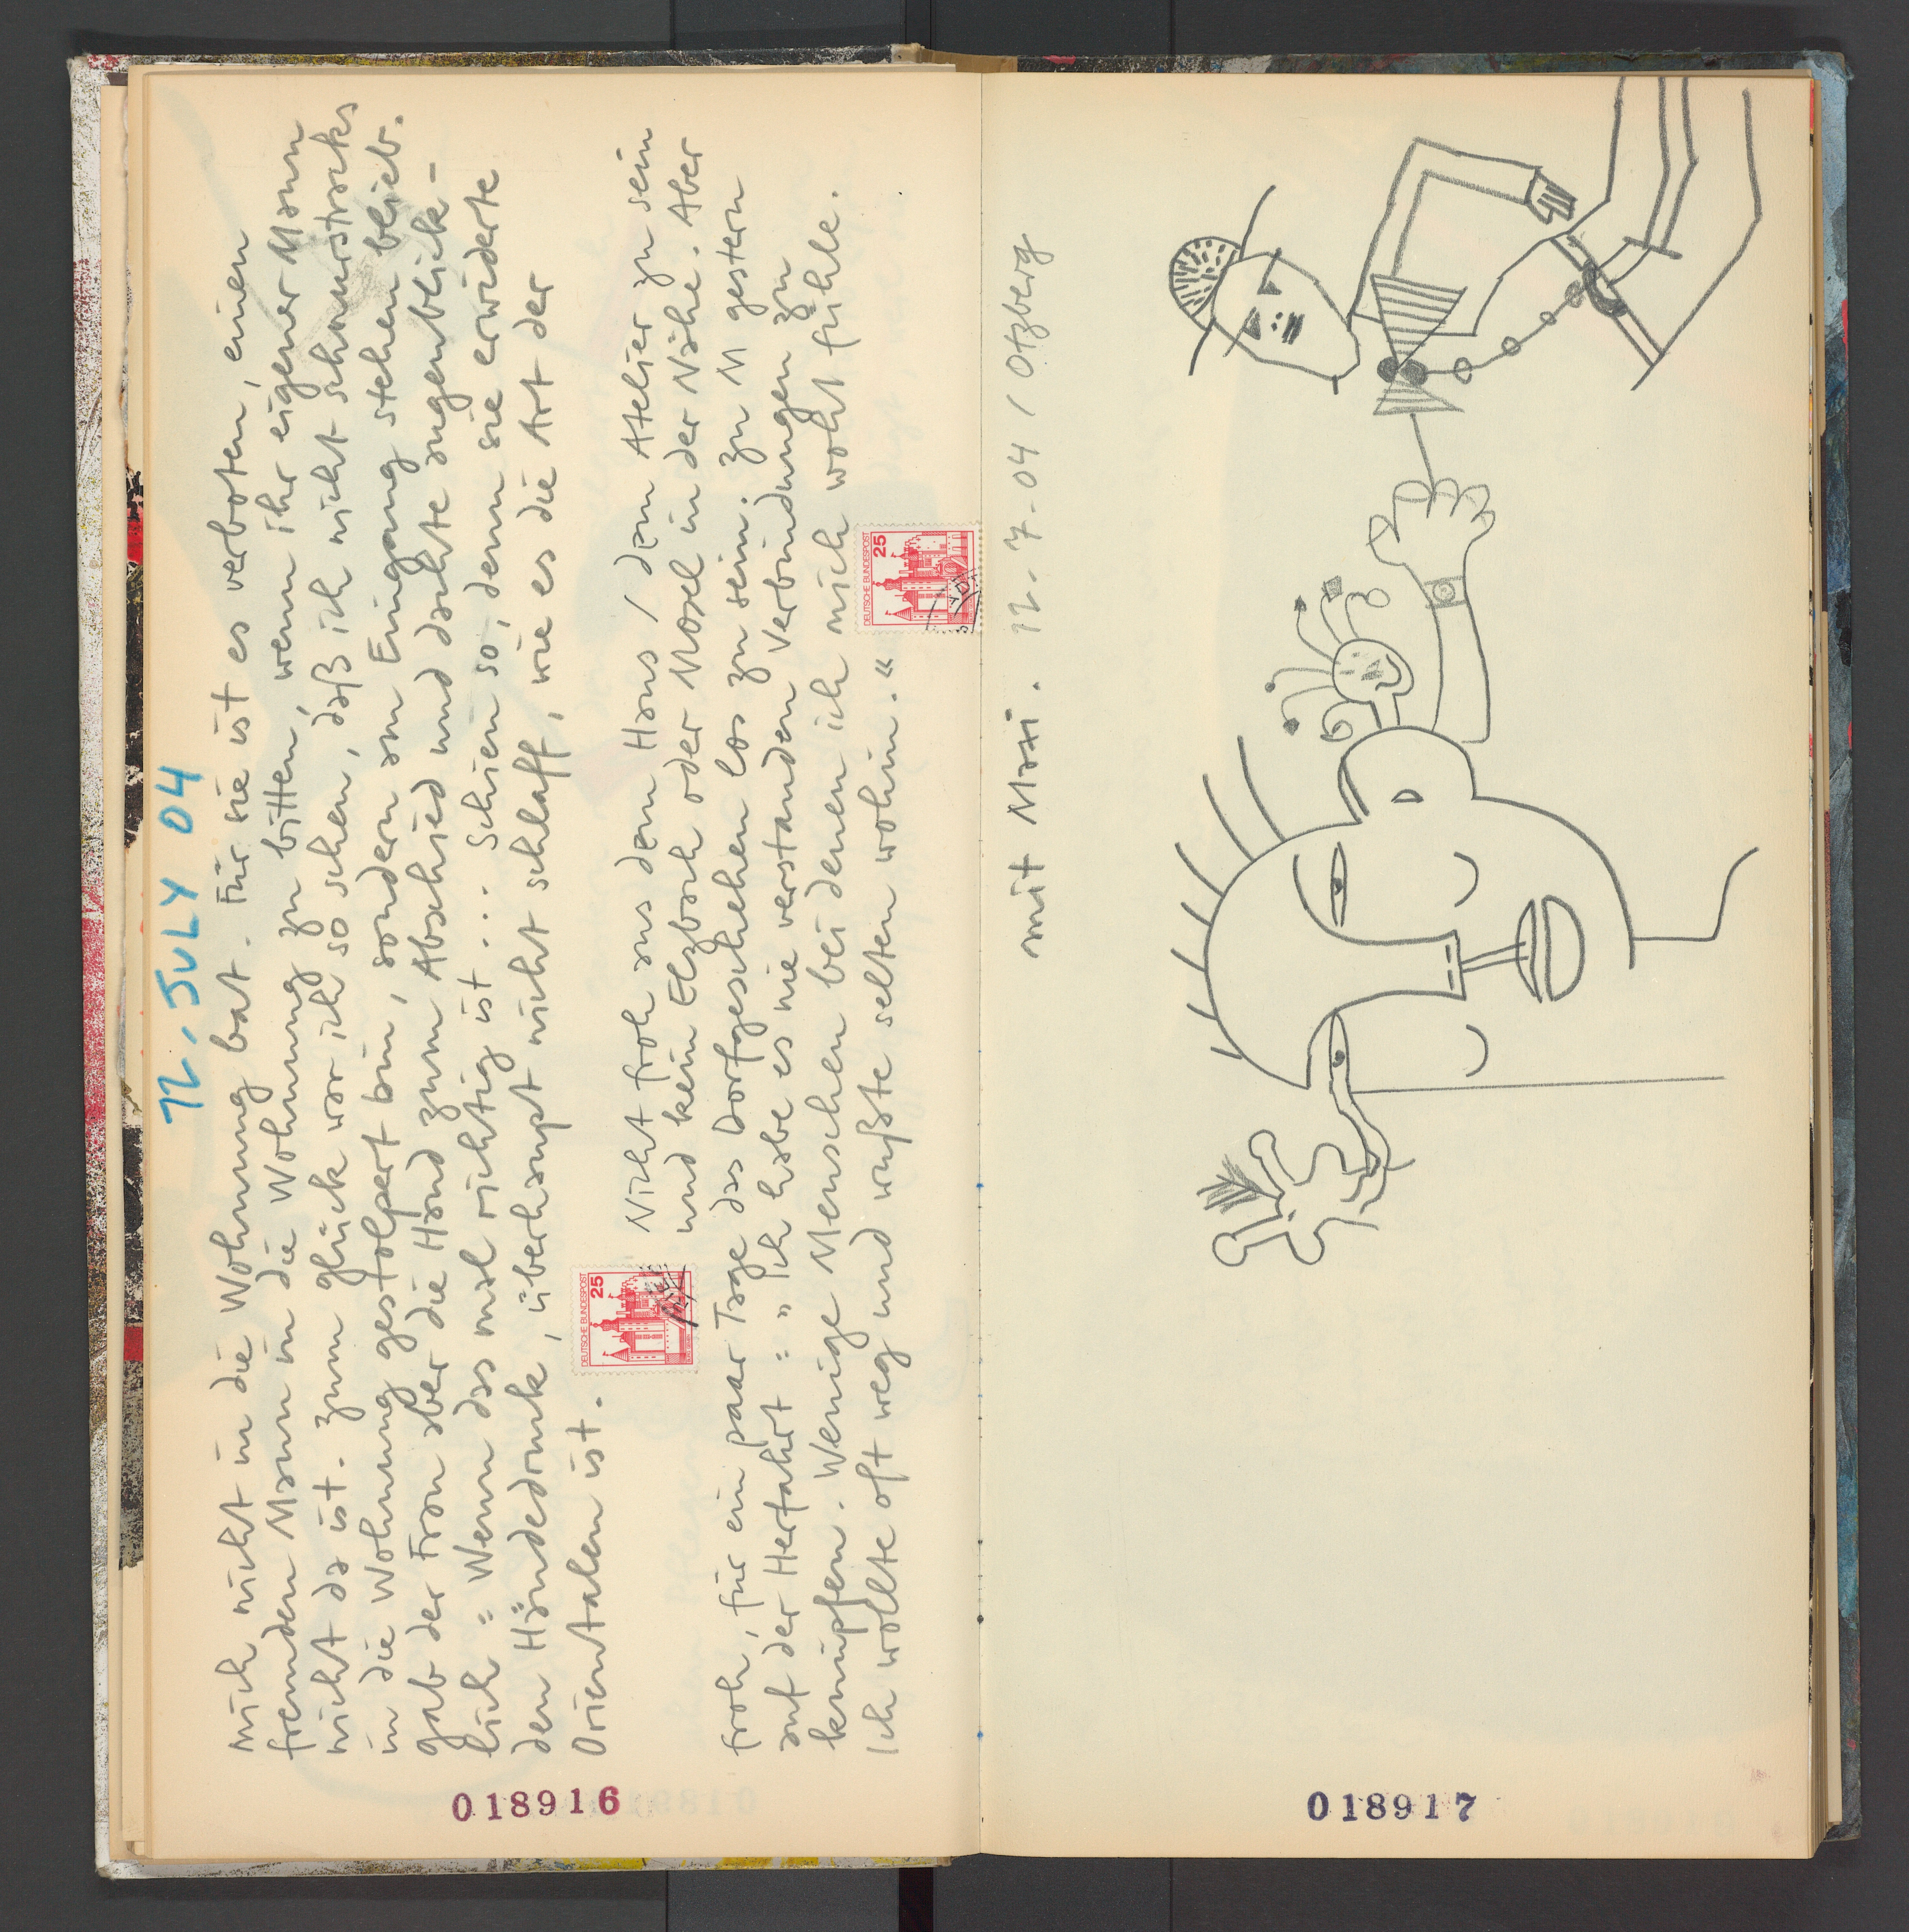 12. JULY 04
mich nicht in die Wohnung bat. Für sie ist es verboten, einen
fremden Mann in die Wohnung zu bitten, wenn ihr eigener Mann
nicht da ist. Zum Glück war ich so schen, daß ich nicht schnurstracks
in die Wohnung gestolpert bin, sondern am Eingang stehen blieb.
gab der Frau aber die Hand zum Abschied und dachte augenblick-
lich: Wenn das mal richtig ist... Schien so, denn sie erwiderte
den Händedruck, überhaupt nicht schlaff, wie es die Art der
Orientalen ist.
Nicht froh aus dem Haus / dem Atelier zu sein
und kein Elzbach oder Mosel in der Nähe. Aber
froh, für ein paar Tage das Dorfgeschehen los zu sein. Zu M gestern
auf der Herfahrt: "Ich habe es nie verstanden Verbindungen zu
knüpfen. Wenige Menschen bei denen ich mich wohl fühle.
Ich wollte oft weg und wußte selten wohin."
DEUTSCHE BUNDESPOST
25
DEUTSCHE BUNDESPOST
25
018916
mit Maxi. 12.-7.-04 / Otzberg
018917